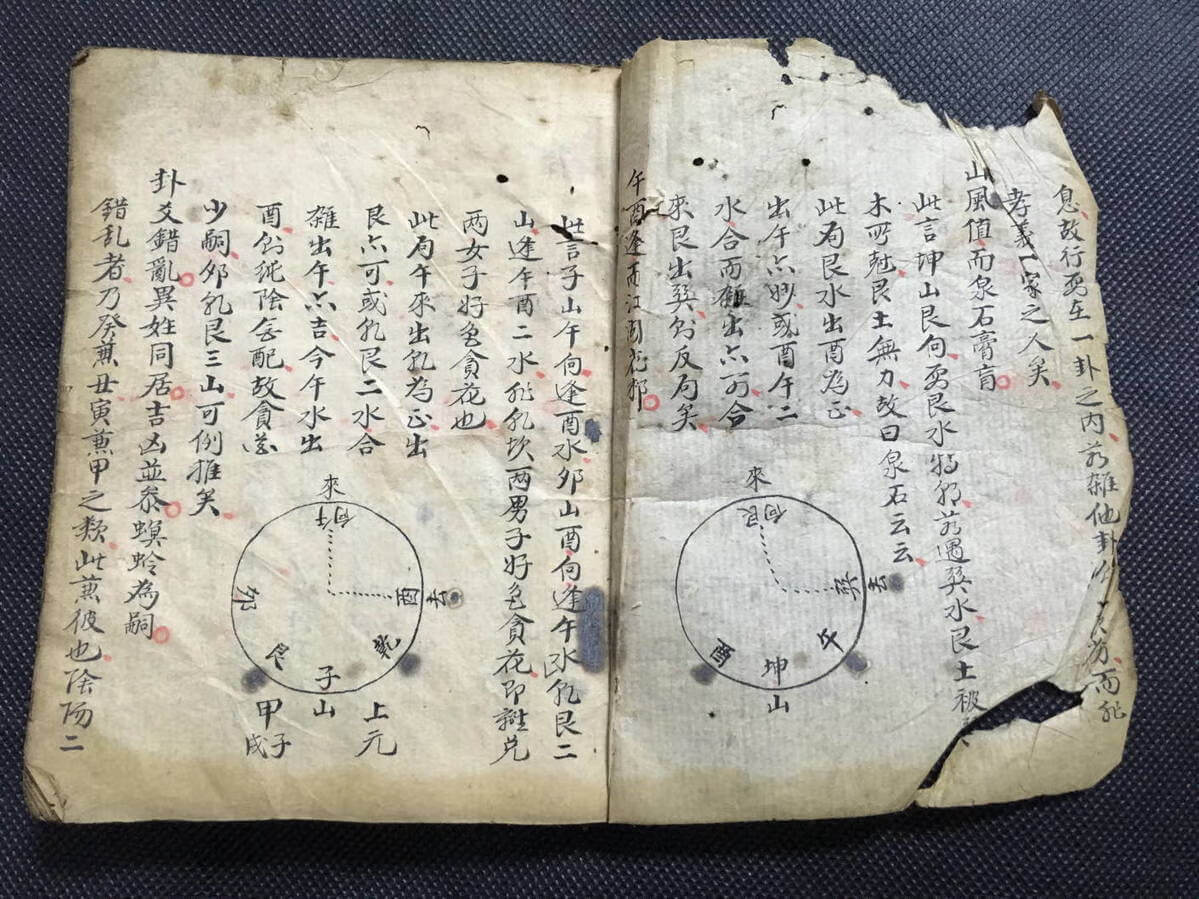 息故行要在一卦之内若雜他卦
孝義一家之人矣
山風值而泉石膏肓
此言坤山艮向要艮水特朝若遇巽水艮土被
木所尅艮土無力故曰泉石云云
此局艮水出酉為正
出午六妙或酉午二
水合而雜出六可合
來艮出巽則反局矣
午酉逢而江湖花邪
來
向艮
巽
去
午
坤
山
酉
此言子山午向逢酉水夘山酉向逢午水乾艮二
山逢午酉二水非乾坎两男子好色貪花即離兌
两女子好色貪花也
此局午來出乾為正出
艮六可或乾艮二水合
雜出午六吉今午水出
酉則純陰無配故貪花
少嗣夘乾艮三山可例推矣
來
向午
酉
去
乾
子
山
艮
夘
上元
甲子
戌
卦爻錯亂異姓同居吉凶並叅螟蛉為嗣
錯乱者乃癸兼丑寅兼甲之類此兼彼也陰陽二